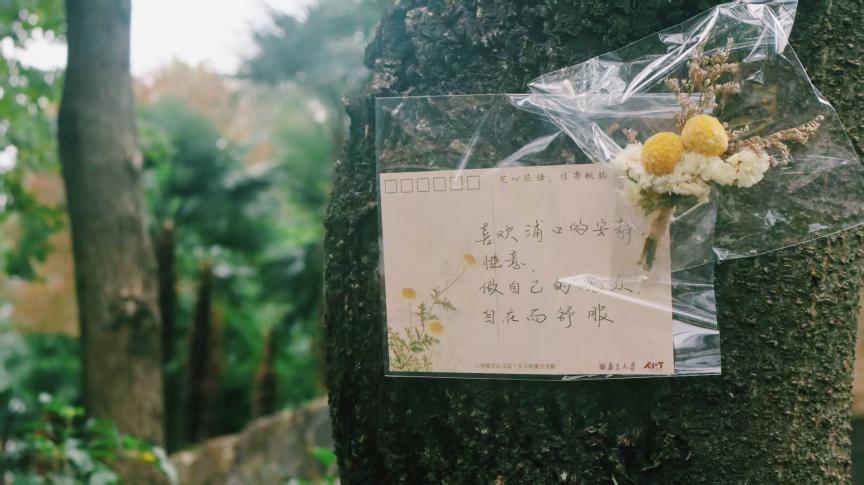 艺心花语，信寄秋韵
喜欢浦口的安静
惬意，
做自己的观众，
自在而舒服
南京大学